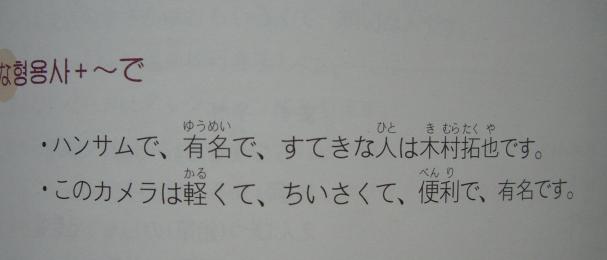 な형용사+～で
ゆうめい ひと き むら たく や
・ハンサムで、有名で、すてきな人は木村拓也です。
かる べん り
・このカメラは軽くて、ちいさくて、便利で、有名です。